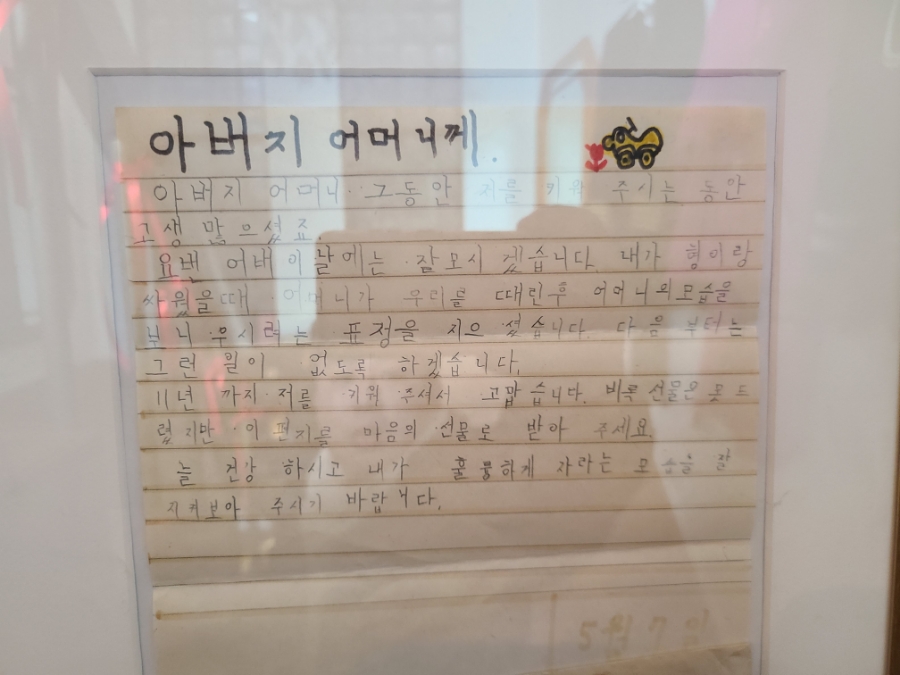 아버지 어머니께.
아버지 어머니 그동안 저를 키워 주시는 동안
고생 많으셨죠.
요번 어버이날에는 잘모시겠습니다. 내가 형이랑
싸웠을때 어머니가 우리를 때린후 어머니의모습을
보니 우시려는 표정을 지으셨습니다. 다음부터는
그런 일이 없도록 하겠습니다.
11년 까지 저를 키워 주셔서 고맙습니다. 비록 선물은 못드
렸지만 이 편지를 마음의 선물로 받아 주세요.
늘 건강 하시고 내가 훌륭하게 자라는 모습을 잘
지켜보아 주시기 바랍니다.
5월 7일